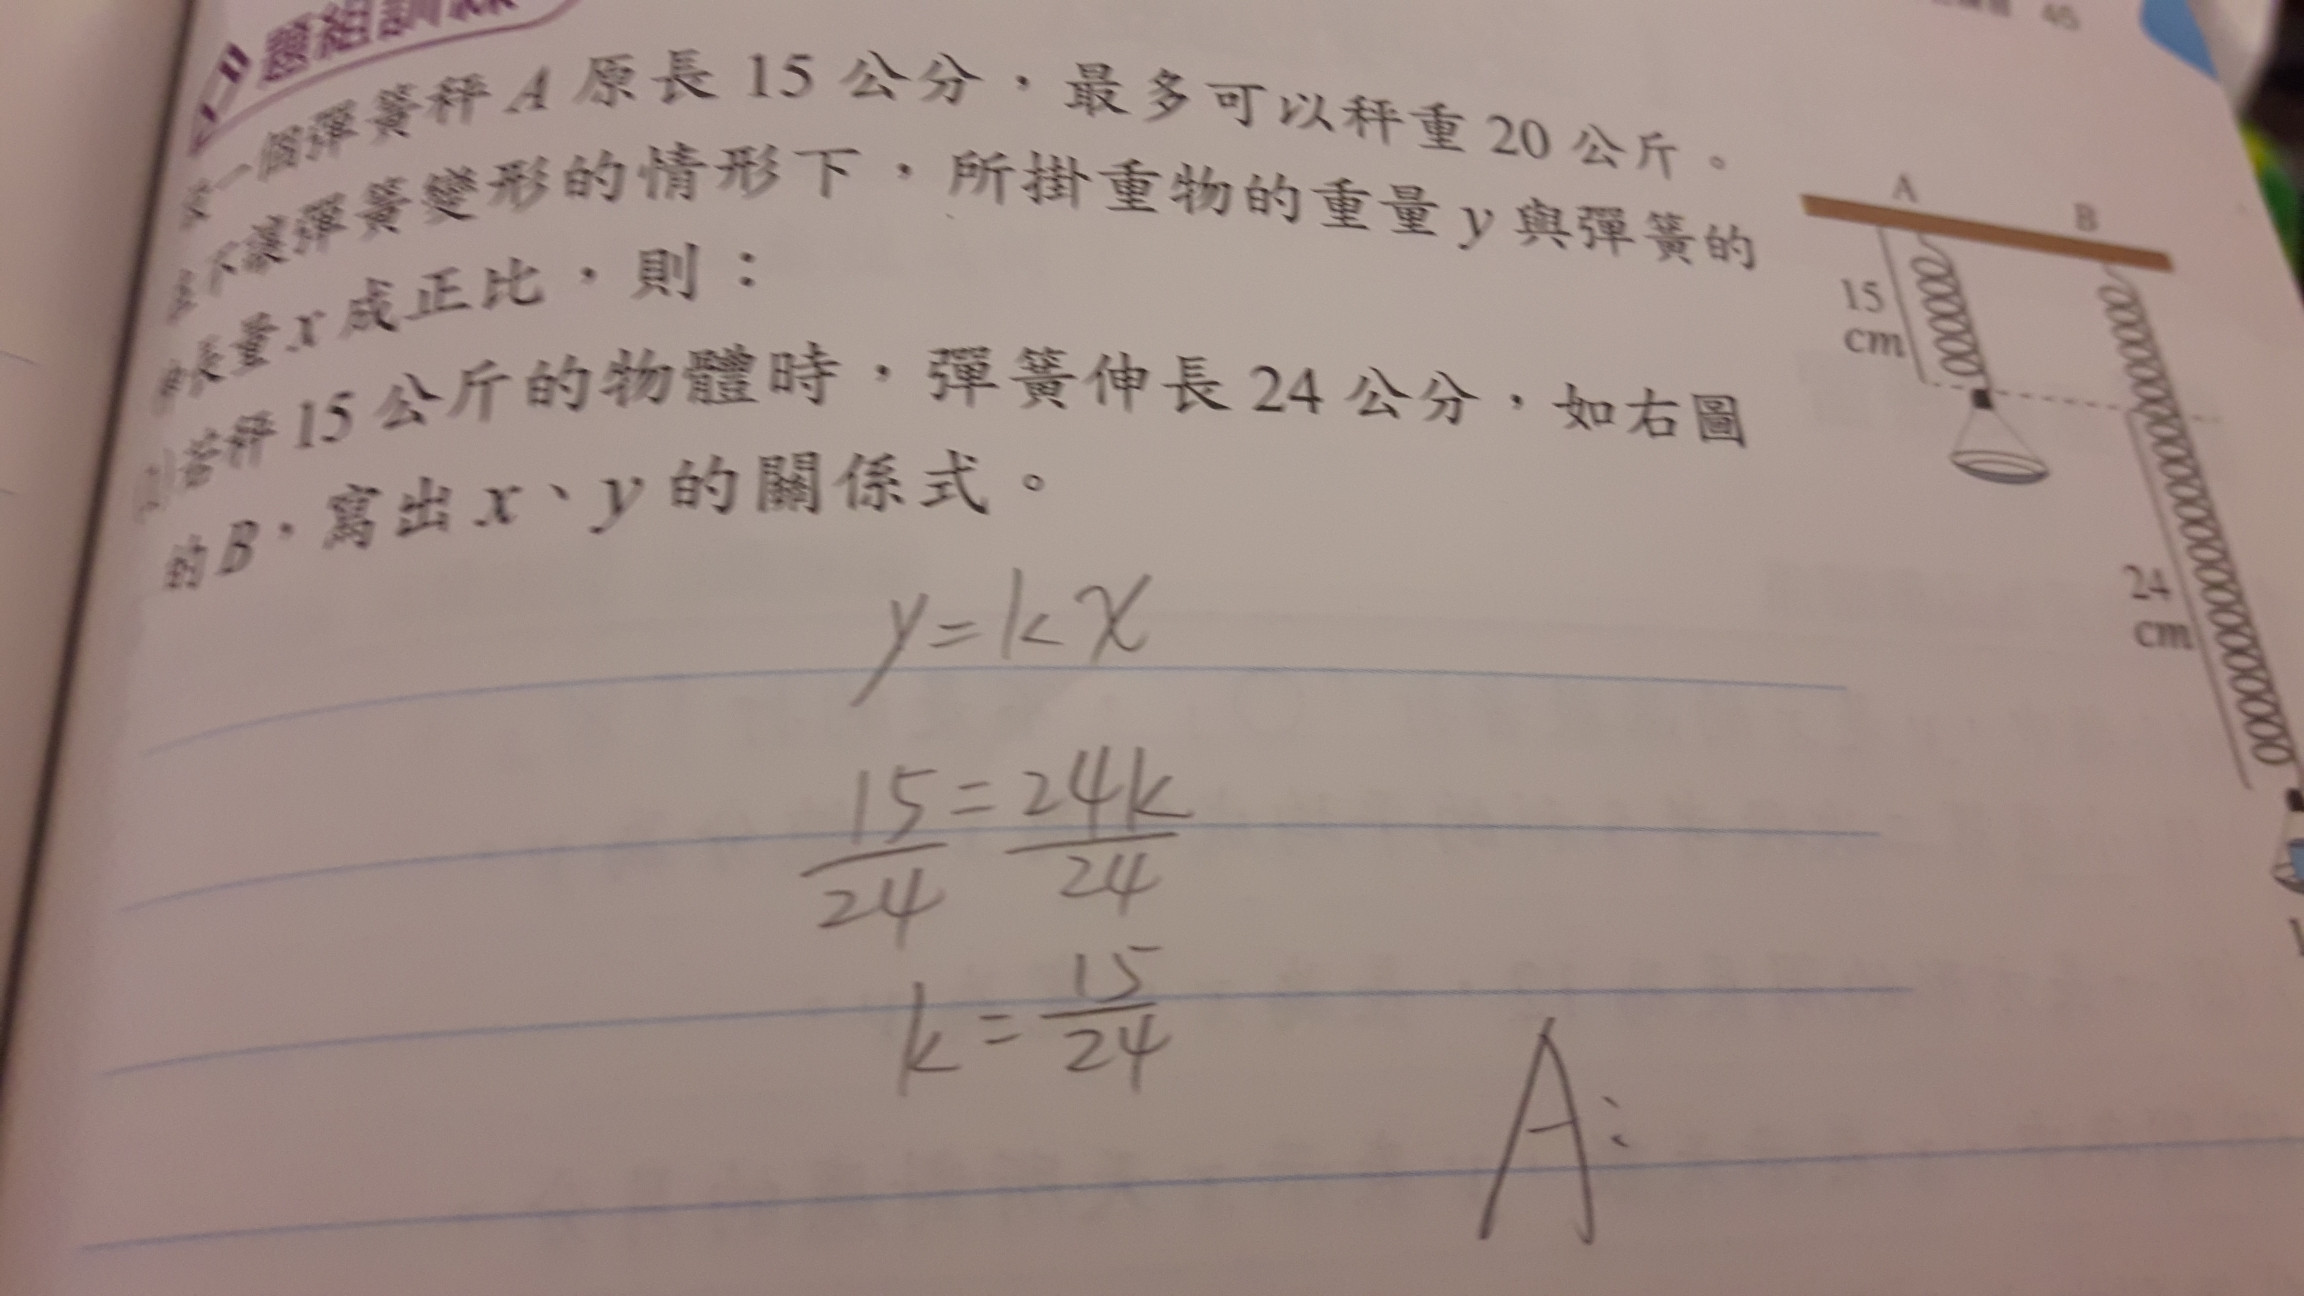 題組訓練
一個彈簧秤 A 原長 15 公分，最多可以秤重 20 公斤。
不讓彈簧變形的情形下，所掛重物的重量 y 與彈簧的
伸長量 x 成正比，則：
若秤 15 公斤的物體時，彈簧伸長 24 公分，如右圖
的 B，寫出 x、y 的關係式。
A
B
15
cm
24
cm
y=kx
15/24=24k/24
k=15/24
A: